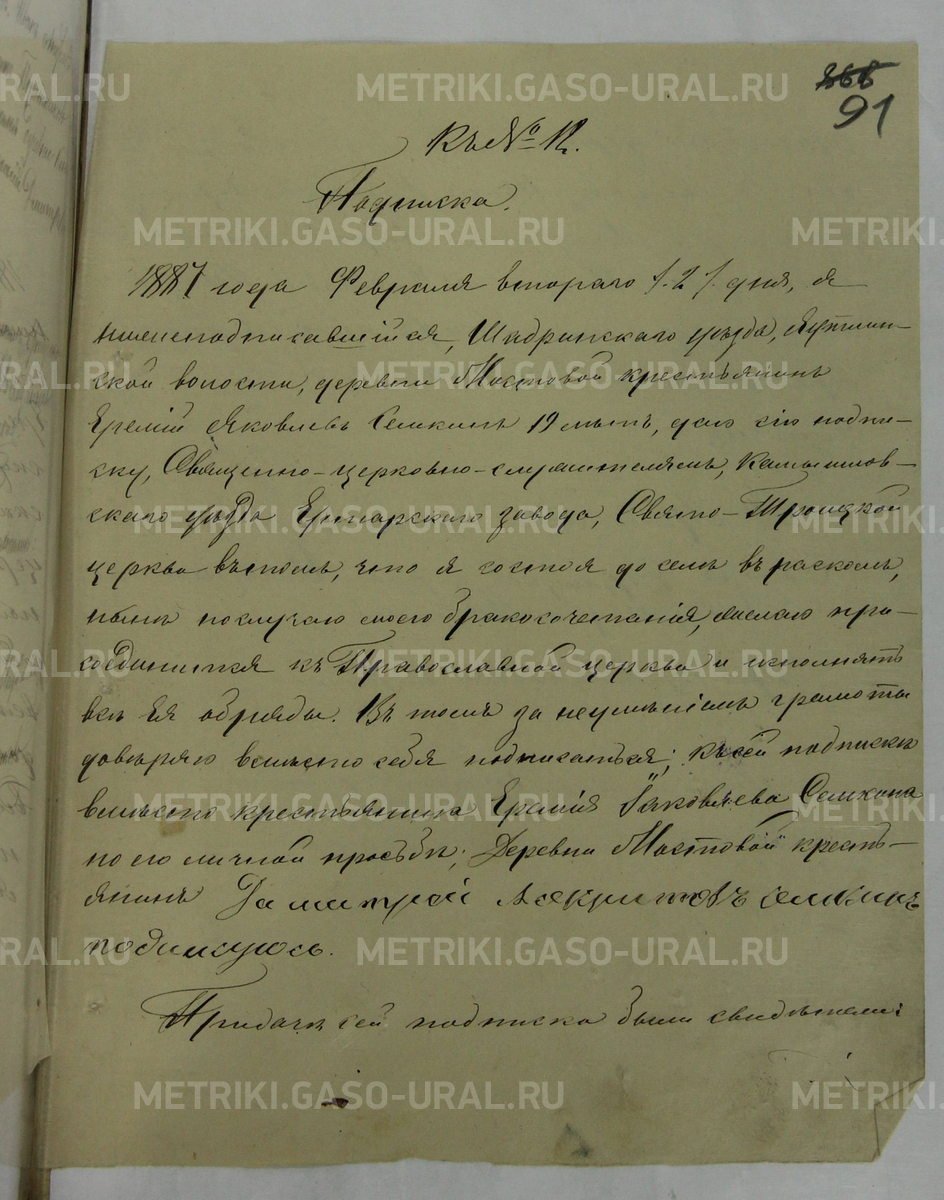 868
91
Къ № 12.
Подписка.
1887 года Февраля втораго /.2/. дня, я
нижеподписавшійся, Шадринскаго уѣзда, Яутлин-
ской волости, деревни Мостовой крестьянинъ
Еремій Яковлевъ Семкинъ 19 лѣтъ, даю сію подпи-
ску, Священно-церковно-служителямъ, Камышлов-
скаго уѣзда Ертарскаго завода, Свято-Троицкой
церкви въ томъ, что я состоя до селѣ въ расколѣ,
нынѣ по случаю моего бракосочетанія, желаю при-
соединится къ Православной церкви и исполнять
всѣ Ея обряды. Въ томъ за неумѣніемъ грамоты
довѣряю вмѣсто себя подписаться; къ сей подпискѣ
вмѣсто крестьянина Еремія Яковлева Семкина
по его личной просьбѣ; Деревни Мостовой кресть-
янинъ Дамитрей семкинъ
подпишуюсь.
При дачѣ сей подписки были свидѣтели:
METRIKI.GASO-URAL.RU